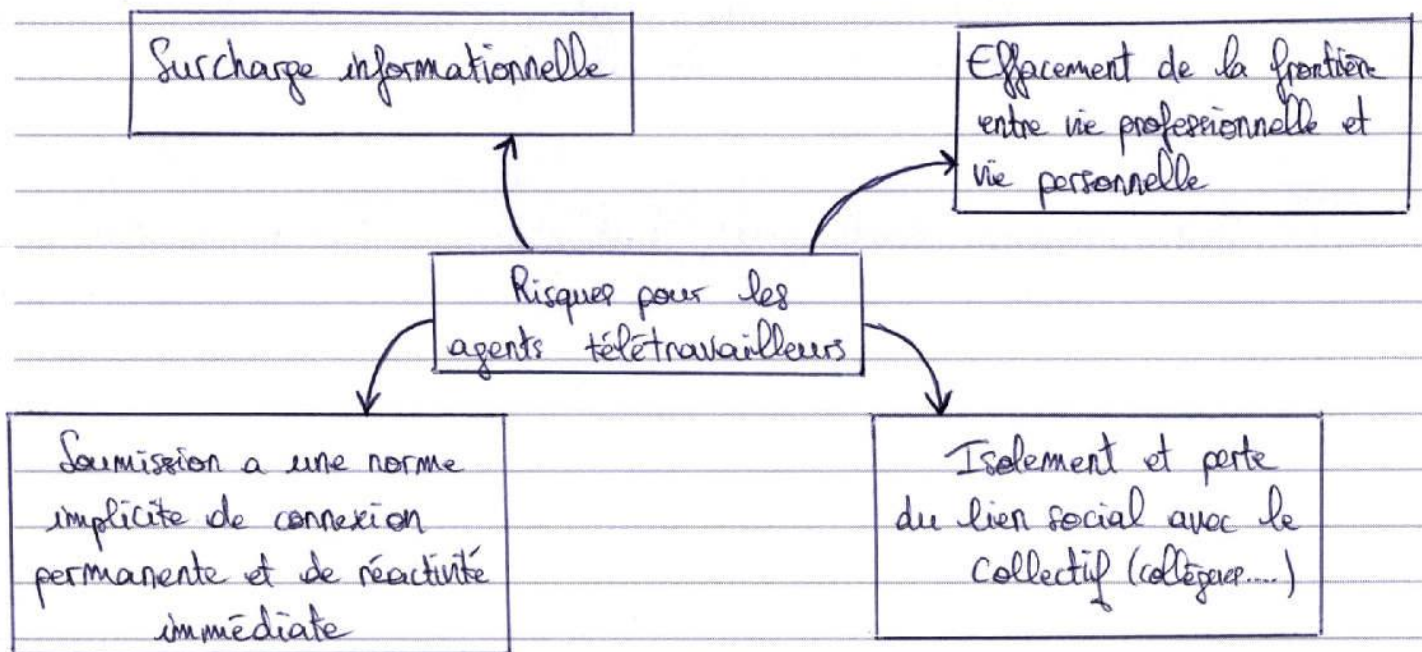 Surcharge informationnelle
Effacement de la frontière
entre vie professionnelle et
vie personnelle
Risques pour les
agents télétravailleurs
Soumission a une norme
implicite de connexion
permanente et de réactivité
immédiate
Isolement et perte
du lien social avec le
collectif (collègues....)